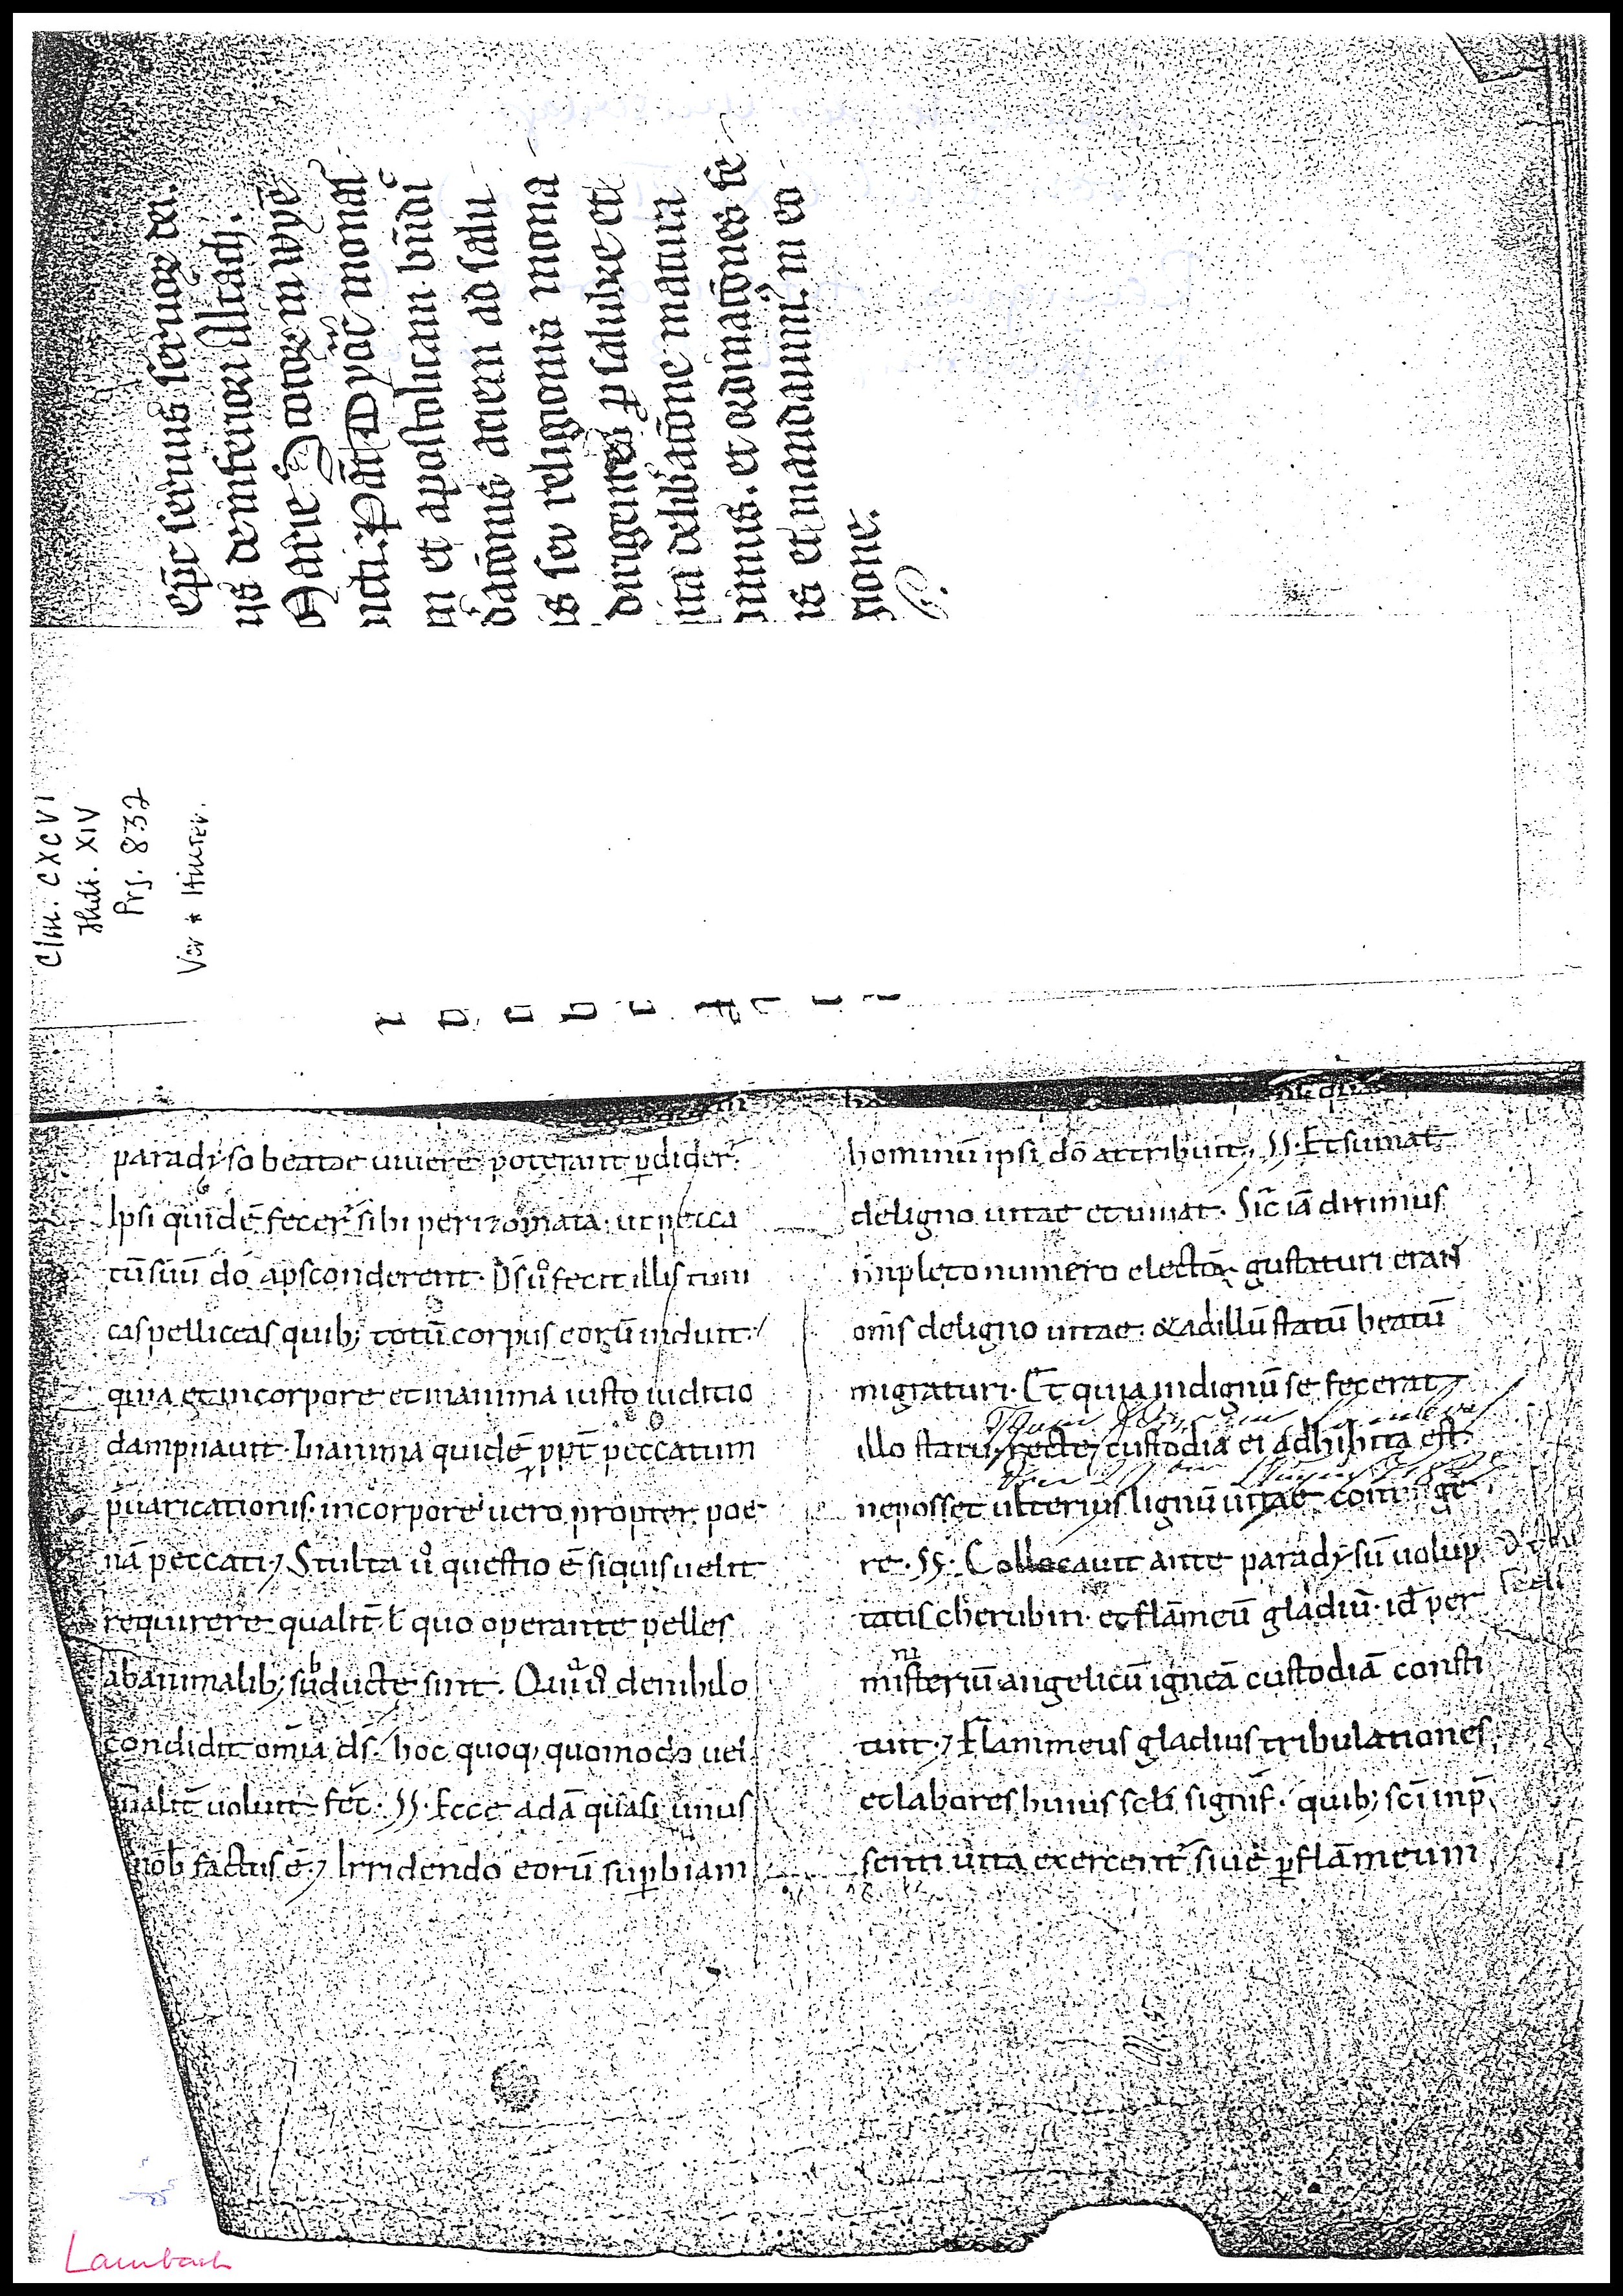 Ep̄c seruus seruoꝝ dei.
ijs de inferiori Altach.
Marie
ucti. Pat
m et apostolicam b̄ndi
dac̄onis aciem ad salu
is seu religionis mona
dirigentes
ura delib̄ac̄one matura
imus. et ordinac̄ones
is et mandauim⁹. in eo
gione.
Clm. CXCVI
XIV
Prs. 832
paradyso beatae uiuere poterant ꝑdider̄.
Ipsi quidē fecer̄ sibi perizomata. ut pecca
tū suū dō apsconderent. Ds̄ uͦ fecit illis tuni
cas pelliceas quib; totū corpus eorū induit.
quia et in corpore et in anima iusto iuditio
dampnauit. In anima quidē ꝓpt̄ peccatum
p̄uaricationis. in corpore uero propter poe
nā peccati; Stulta uͦ questio ē si quis uelit
requirere qualit̄. ł quo operante pelles
ab animalib; subducte sint. Qui uͦ de nihilo
condidit om̄ia ds̄. hoc quoq; quomodo uel
qualit̄ uoluit fec̄. SS. Ecce adā quasi unus
nob̄ factus ē; Irridendo eorū suꝑbiam
hominū ipsi dō attribuit; SS. Et sumat
de ligno uitae et uiuat. Sic̄ iā diximus
impleto numero electoꝝ gustaturi eran̄
om̄s de ligno uitae. & ad illū statū beatū
migraturi. Et quia indignū se fecerat
illo statu. recte custodia ei adhibita est.
ne posset ulterius lignū uitae contige
re. SS. Collocauit ante paradysū uolup
tatis cherubin. et flāmeū gladiū. id per
ni
misteriū angelicū igneā custodiā consti
tuit; Flammeus gladius tribulationes
et labores huius scłi signif̄. quib; sc̄i in p̄
senti uita exercent̄ siue ꝑ flāmeum
Lambach